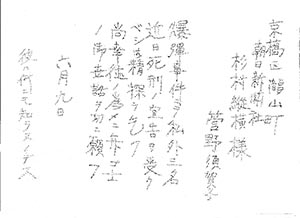 京橋区瀧山町
朝日新聞社
杉村縦横様
管野須賀子
爆彈事件ニテ私外三名
近日死刑ノ宣告ヲ受ク
ベシ御精探ヲ乞フ
尚幸徳ノ為メニ弁ゴ士
ノ御世話ヲ切ニ願フ
六月九日
彼ハ何ニモ知ラヌノデス